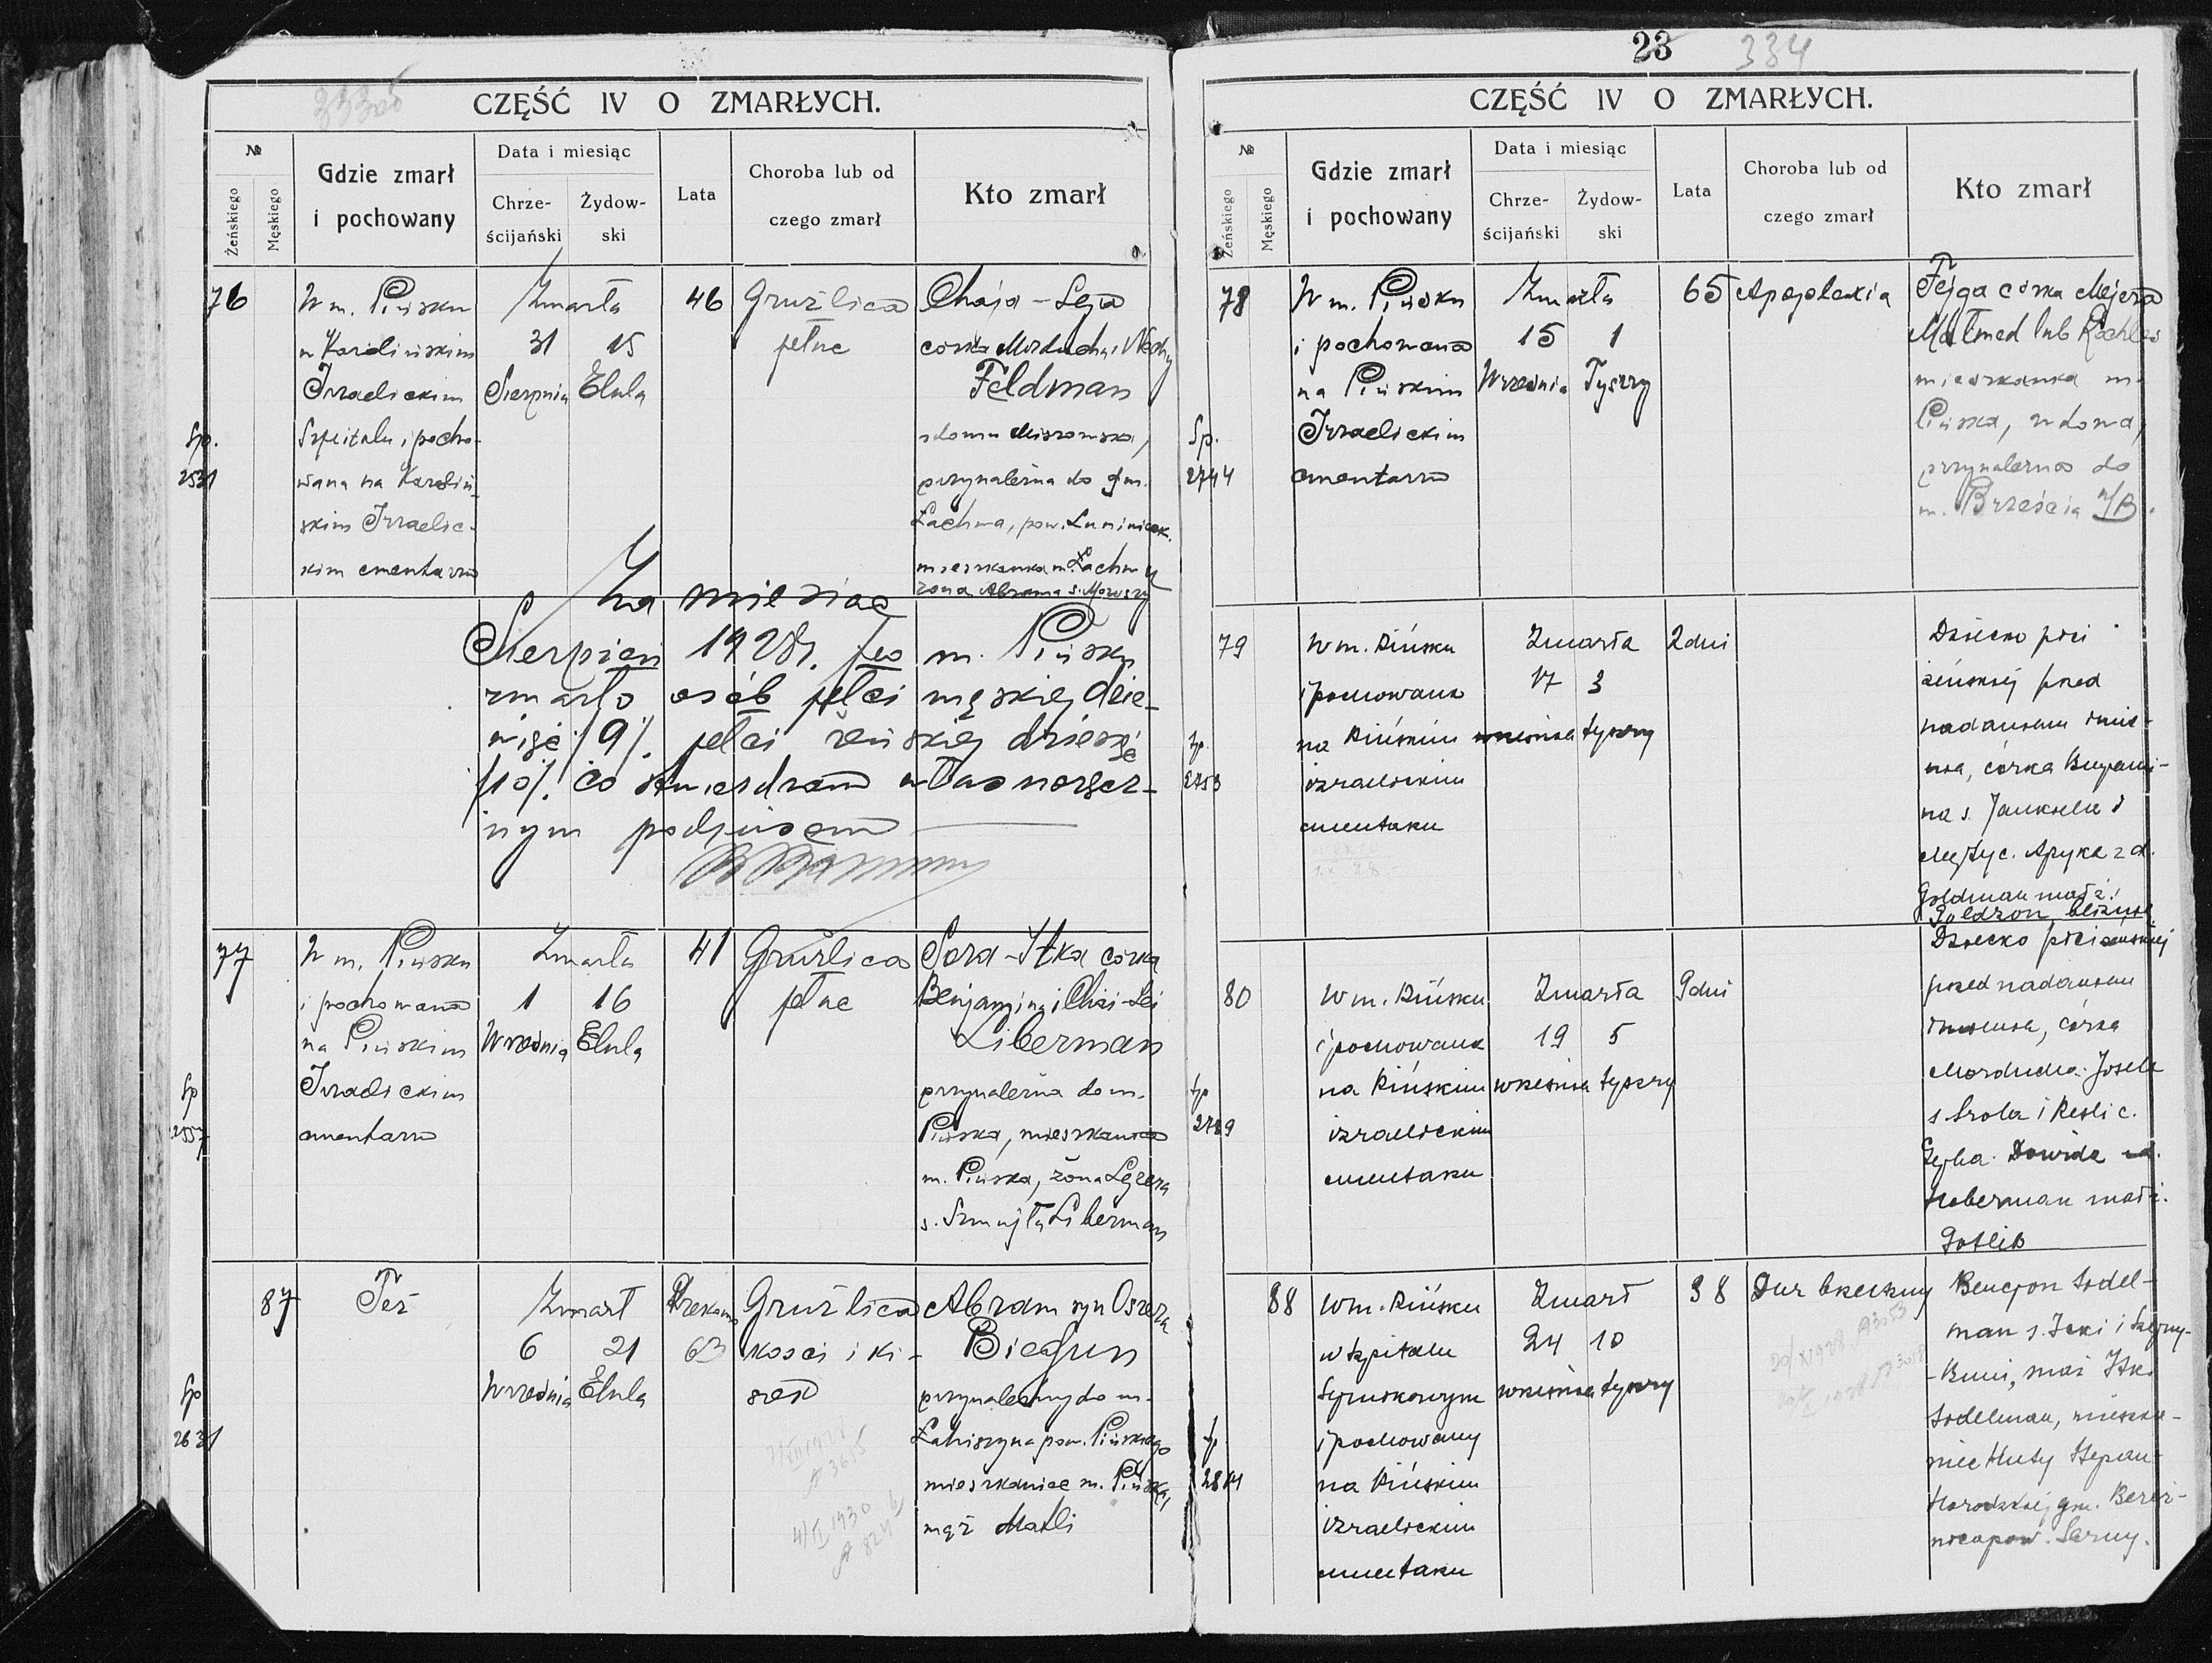 CZĘŚĆ IV O ZMARŁYCH.
№
Żeńskiego
Męskiego
Gdzie zmarł
i pochowany
Data i miesiąc
Chrze-
ścijański
Żydow-
ski
Lata
Choroba lub od
czego zmarł
Kto zmarł
76
Sp.
2531
W m. Pińsku
w Karolińskim
Izraelickim
Szpitalu i pocho-
wana na Karoliń-
skim Izraelic-
kim cmentarzu
Zmarła
31 15
Sierpnia Elula
46
Gruźlica
płuc
Chaja-Leja
córka Morducha i Nechy
Feldman
z domu
przynależna do gm.
Łachwa, pow. Łuninieck.
mieszkanka m. Łachwy
żona Abrama s. Mowszy
Za miesiąc
Sierpień 1928r. po m. Pińsku
zmarło osób płci męskiej dzie-
więć /9/. płci żeńskiej dziesięć
/10/. co stwierdzam własnoręcz-
nym podpisem
77
Sp
2557
W m. Pińsku
i pochowana
na Pińskim
Izraelickim
cmentarzu
Zmarła
1 16
Września Elula
41
Gruźlica
płuc
Sora-Itka córka
Benjamina i Chai-Lei
Liberman
przynależna do m.
Pińska, mieszkanka
m. Pińska, żona Lejzera
s. Szmujła Liberman
87
Sp
2631
Też
Zmarł
6 21
Września Elula
63
Gruźlica
kości i ki-
szek
Abram syn Oszera
Biegun
przynależny do m.
Łohiszyna pow. Pińskiego
mieszkaniec m. Pińska,
mąż Matli
4/II 1930
23
334
CZĘŚĆ IV O ZMARŁYCH.
№
Żeńskiego
Męskiego
Gdzie zmarł
i pochowany
Data i miesiąc
Chrze-
ścijański
Żydow-
ski
Lata
Choroba lub od
czego zmarł
Kto zmarł
78
Sp.
2744
W m. Pińsku
i pochowana
na Pińskim
Izraelickim
cmentarzu
Zmarła
15 1
Września Tyszry
65
Apoplexia
Fejga córka Mejera
Małmed lub Rochles
mieszkanka m.
Pińska, wdowa,
przynależna do
m. Brześcia n/B.
79
Sp
2753
W m. Pińsku
i pochowana
na Pińskim
izraelickim
cmentarzu
Zmarła
17 3
września tyszry
2 dni
Dziecko płci
żeńskiej przed
nadaniem imie-
nia, córka Benjami-
na s. Jankiela i
c. z d.
Goldman małż.
80
Sp
2789
W m. Pińsku
i pochowana
na Pińskim
izraelickim
cmentarzu
Zmarła
19 5
września tyszry
9 dni
Dziecko płci żeńskiej
przed nadaniem
imienia, córka
Morducha-Josela
s. Srola i c.
Dowida
Hoberman małż.
Gotlib
88
Sp
2814
W m. Pińsku
w szpitalu
i pochowany
na Pińskim
izraelickim
cmentarzu
Zmarł
24 10
września tyszry
38
Dur brzuszny
Bencjon Sodel-
man s. Icki i
mąż Itki
Sodelman, mieszka-
niec Huty Stepań-
Horodzkiej gm. Bereź-
nica pow. Sarny.